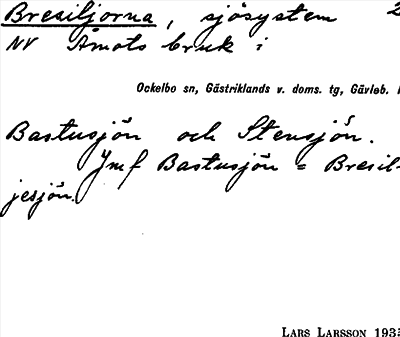 Bresiljorna, sjösystem 2
NV Åmots bruk i
Ockelbo sn, Gästriklands v. doms. tg, Gävleb.
Bastusjön och Stensjön.
Jmf Bastusjön = Bresil-
jesjön.
LARS LARSSON 1935